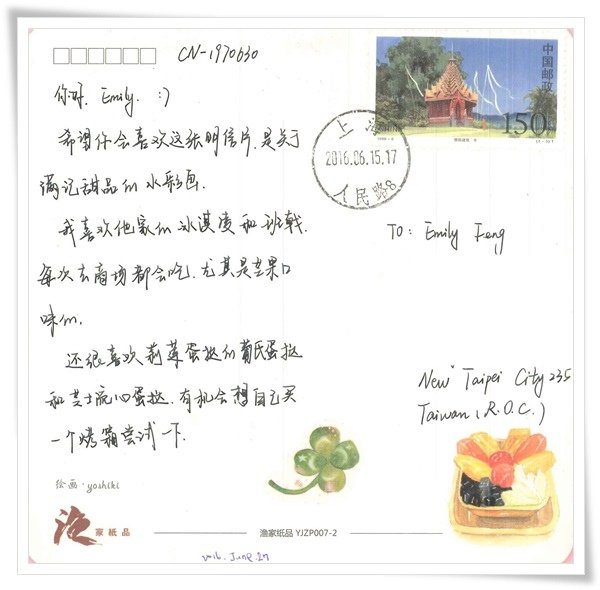 CN-1970630
中国邮政
150
上海
2016.06.15.17
人民路8
你好, Emily. :)
希望你会喜欢这张明信片,是关于
满记甜品的水彩画.
我喜欢他家的冰淇凌和班戟.
每次去商场都会吃.尤其是芒果口
味的.
还很喜欢莉莲蛋挞的葡氏蛋挞
和芝士流心蛋挞.有机会想自己买
一个烤箱尝试一下.
TO: Emily Feng
New Taipei City 235
Taiwan (R.O.C.)
绘画·yoshiki
渔家紙品
渔家纸品 YJZP007-2